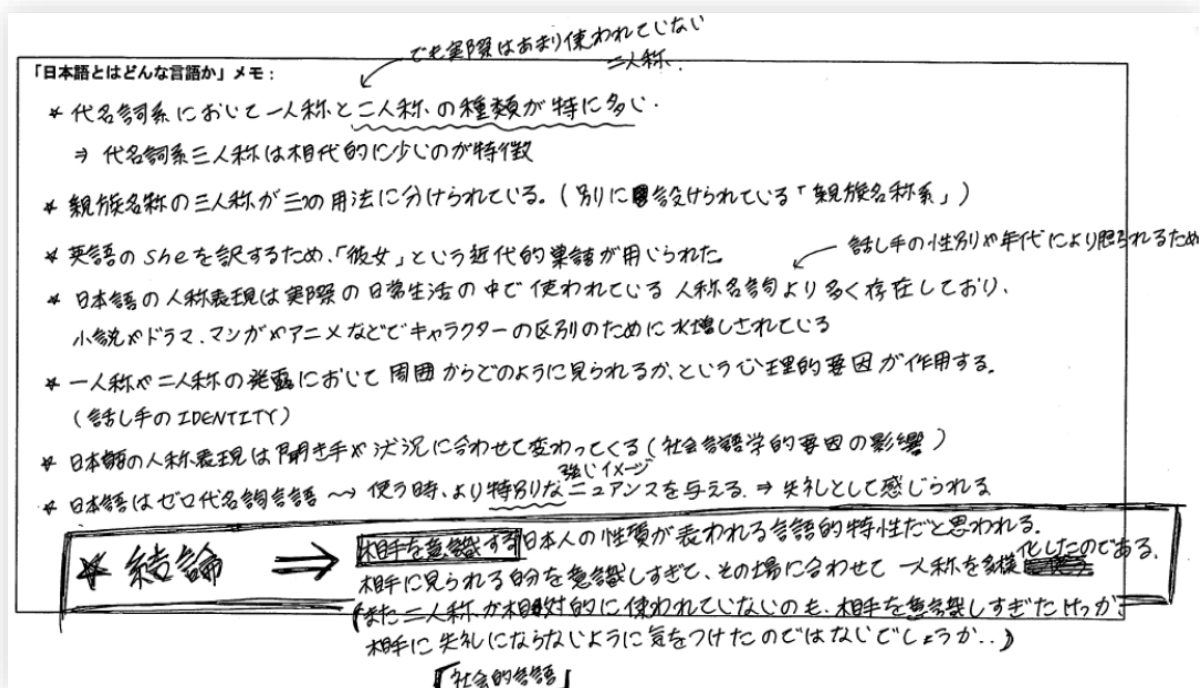 でも実際はあまり使われていない
二人称.
「日本語とはどんな言語か」メモ：
* 代名詞系において一人称と二人称の種類が特に多い.
⇒ 代名詞系三人称は相代的に少いのが特徴
* 親族名称の三人称が三つの用法に分けられている。(別に設けられている「親族名称系」)
* 英語のsheを訳するため、「彼女」という近代的単語が用いられた。
話し手の性別や年代により限られるため
* 日本語の人称表現は実際の日常生活の中で使われている人称名詞より多く存在しており、
小説やドラマ、マンガやアニメなどでキャラクターの区別のために水増しされている
* 一人称や二人称の発露において周囲からどのように見られるか、という心理的要因が作用する。
(話し手のIDENTITY)
* 日本語の人称表現は聞き手や状況に合わせて変わってくる(社会言語学的要因の影響)
強いイメージ
* 日本語はゼロ代名詞言語 ~> 使う時、より特別なニュアンスを与える. ⇒ 失礼として感じられる
* 結論 ⇒ 相手を意識する日本人の性質が表われる言語的特性だと思われる.
相手に見られる自分を意識しすぎて、その場に合わせて一人称を多様化したのである.
(また二人称が相対的に使われていないのも、相手を意識しすぎたけっか、
相手に失礼にならないように気をつけたのではないでしょうか..)
「社会的言語」